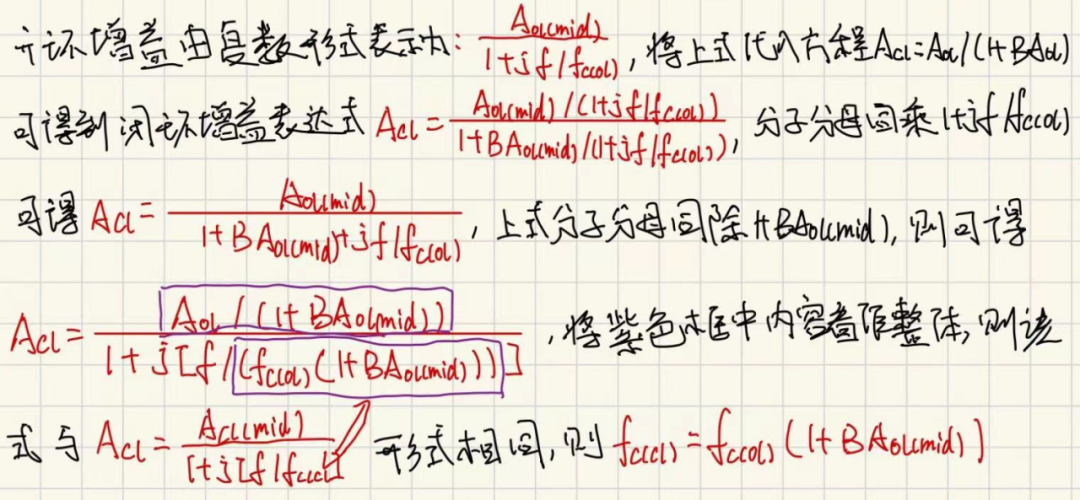 开环增益由复数形式表示为: Aol(mid)/(1+jf/fc(ol)), 将上式代入方程Acl=Aol/(1+BAol)
可得到闭环增益表达式 Acl = (Aol(mid)/(1+jf/fc(ol)))/(1+BAol(mid)/(1+jf/fc(ol))), 分子分母同乘1+jf/fc(ol)
可得 Acl = Aol(mid)/(1+BAol(mid)+jf/fc(ol)), 上式分子分母同除1+BAol(mid), 则可得
Acl = (Aol/(1+BAol(mid)))/(1+j[f/(fc(ol)(1+BAol(mid)))]), 将紫色框中内容看作整体, 则该
式与 Acl = Acl(mid)/(1+j[f/fc(cl)]) 形式相同, 则 fc(cl) = fc(ol)(1+BAol(mid))